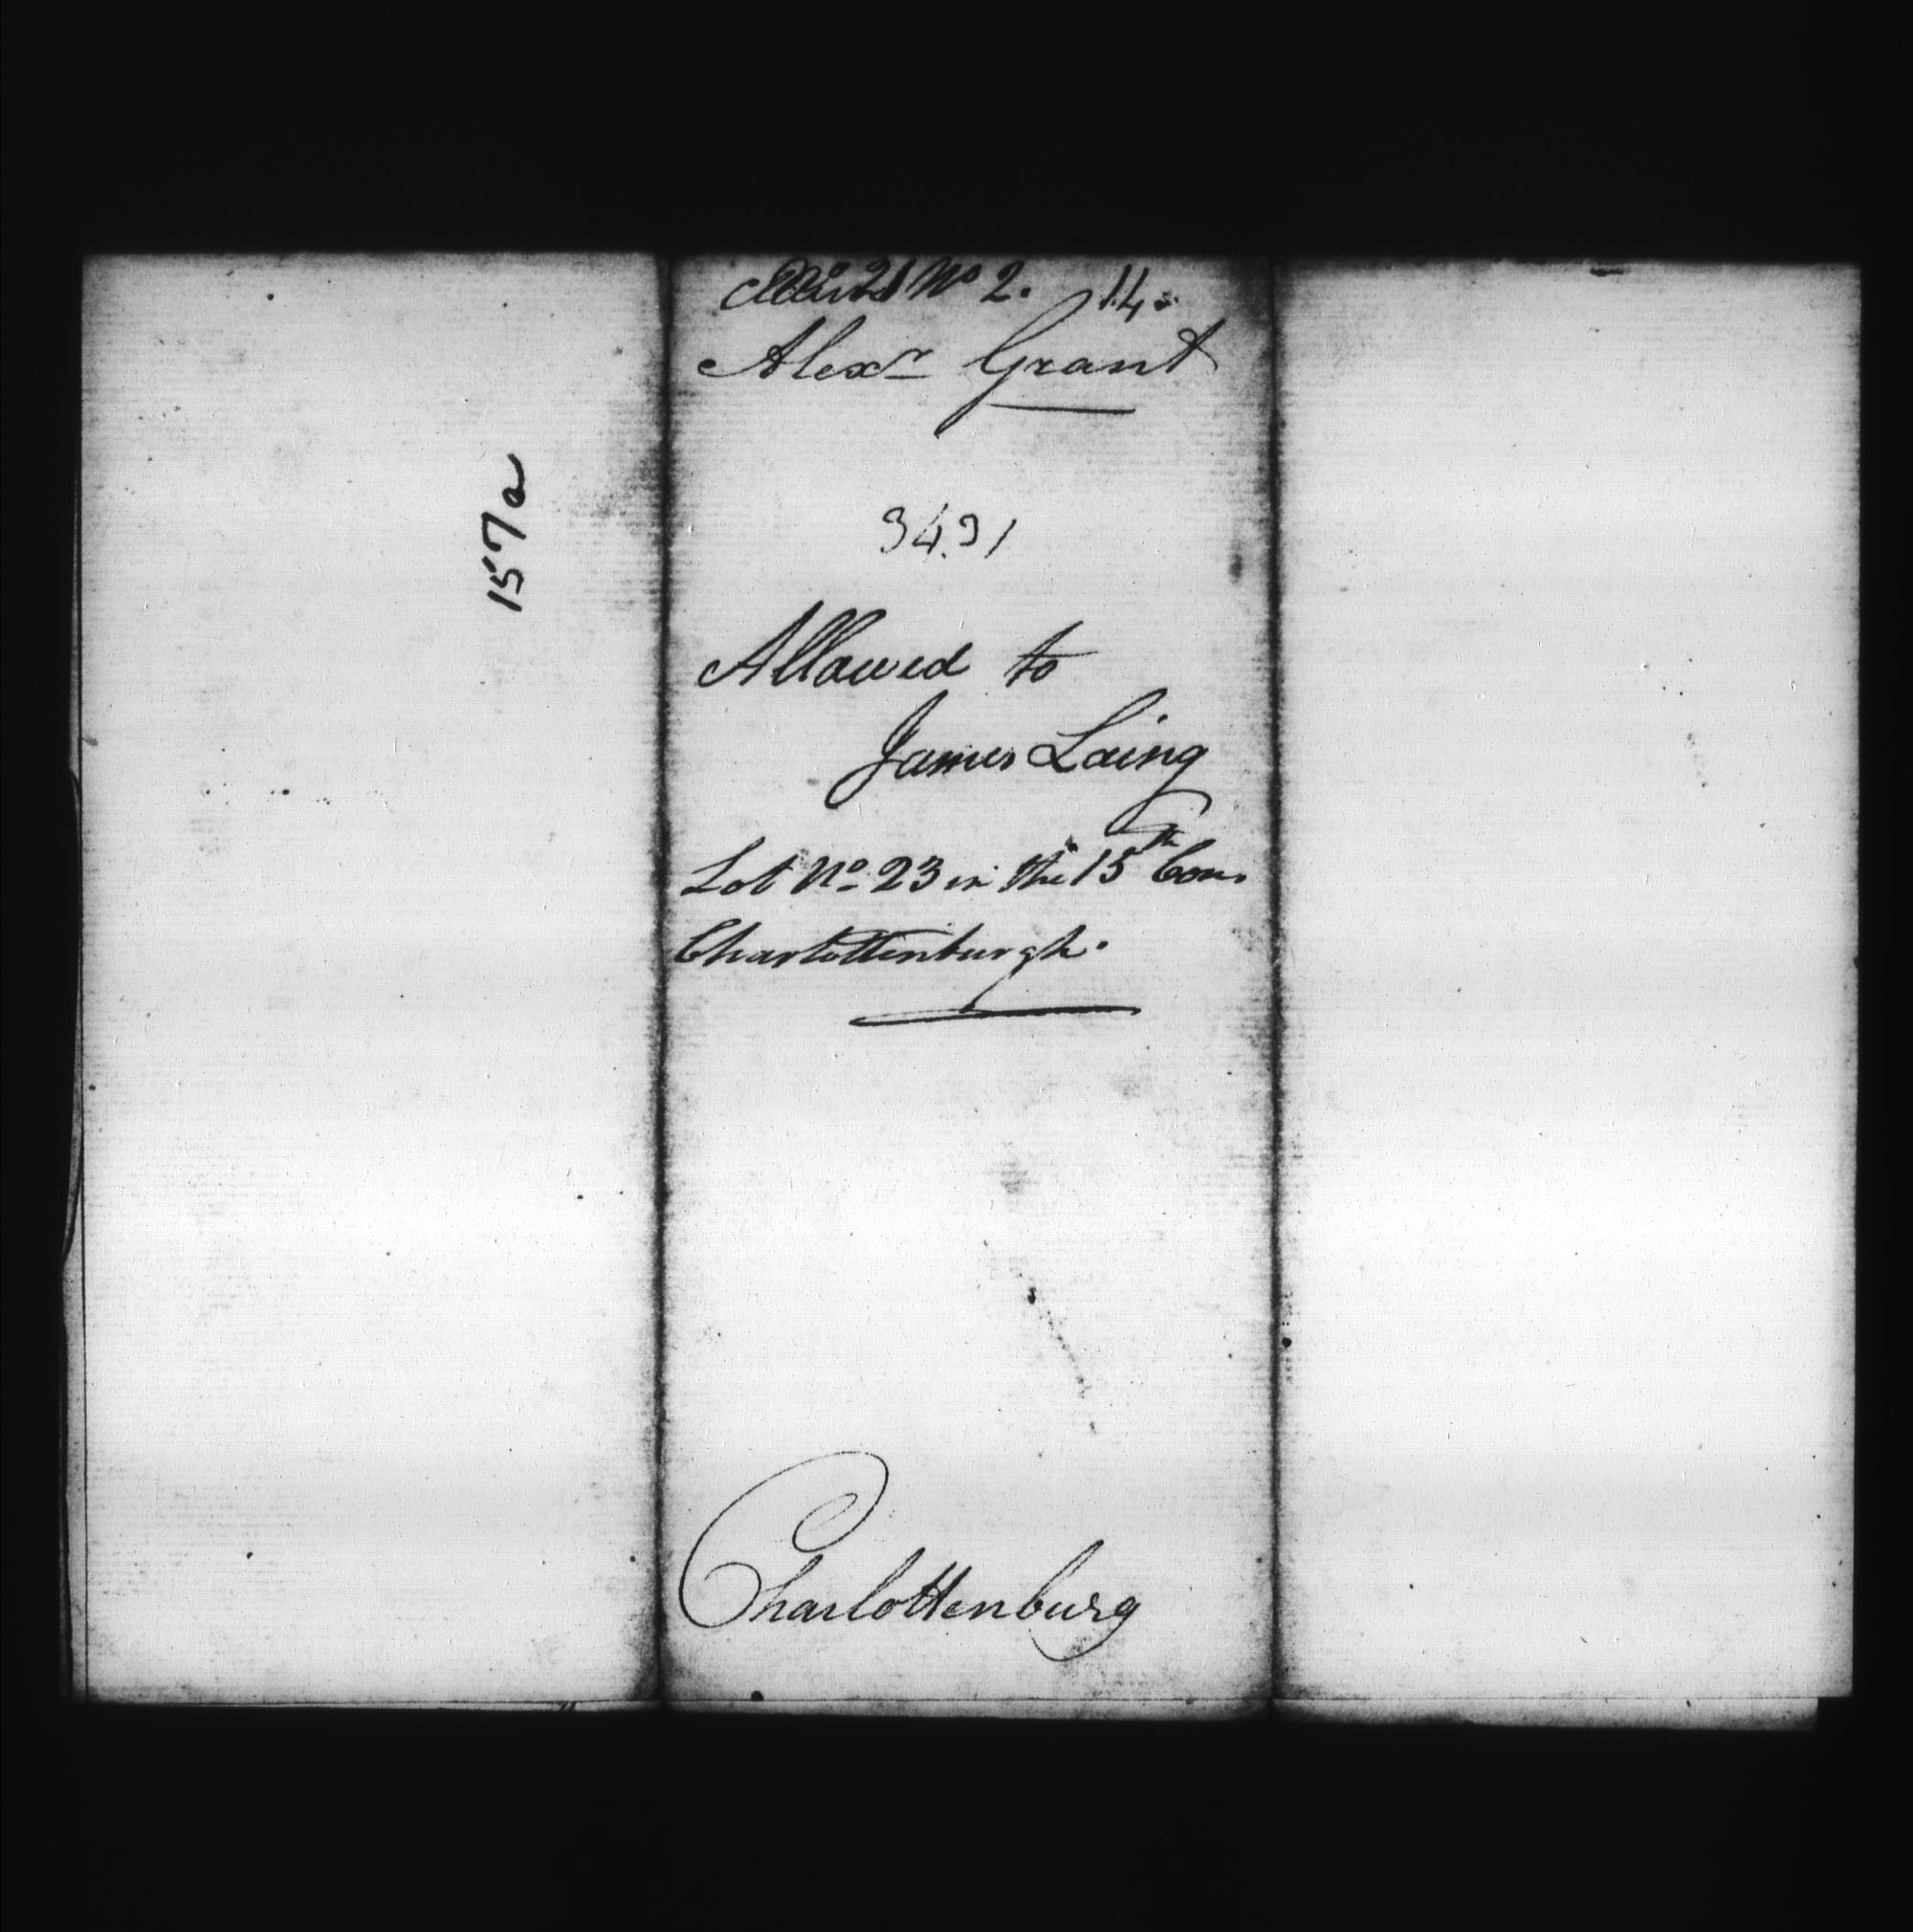 157a
No 2. 14.
Alexr Grant
3431
Allowed to
James Laing
Lot No 23 in the 15th Con.
Charlottenburgh.
Charlottenburg